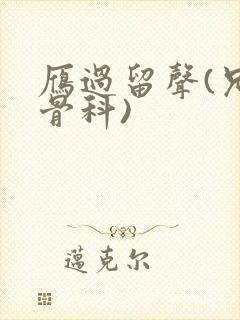 雁過留聲(兄
骨科)
邁克尔